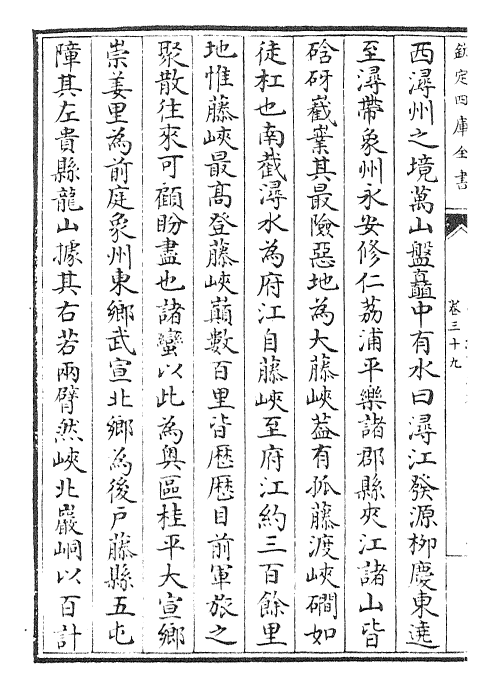 欽定四庫全書
卷三十九
西潯州之境萬山盤矗中有水曰潯江發源柳慶東遶
至潯帶象州永安修仁荔浦平樂諸郡縣夾江諸山皆
硿砑巀嶪其最險惡地為大藤峽葢有孤藤渡峽磵如
徒杠也南截潯水為府江自藤峽至府江約三百餘里
地惟藤峽最髙登藤峽巔數百里皆歴歴目前軍旅之
聚散往來可顧盼盡也諸蠻以此為奥區桂平大宣鄉
崇姜里為前庭象州東鄉武宣北鄉為後戶藤縣五屯
障其左貴縣龍山據其右若兩臂然峽北巖峒以百計